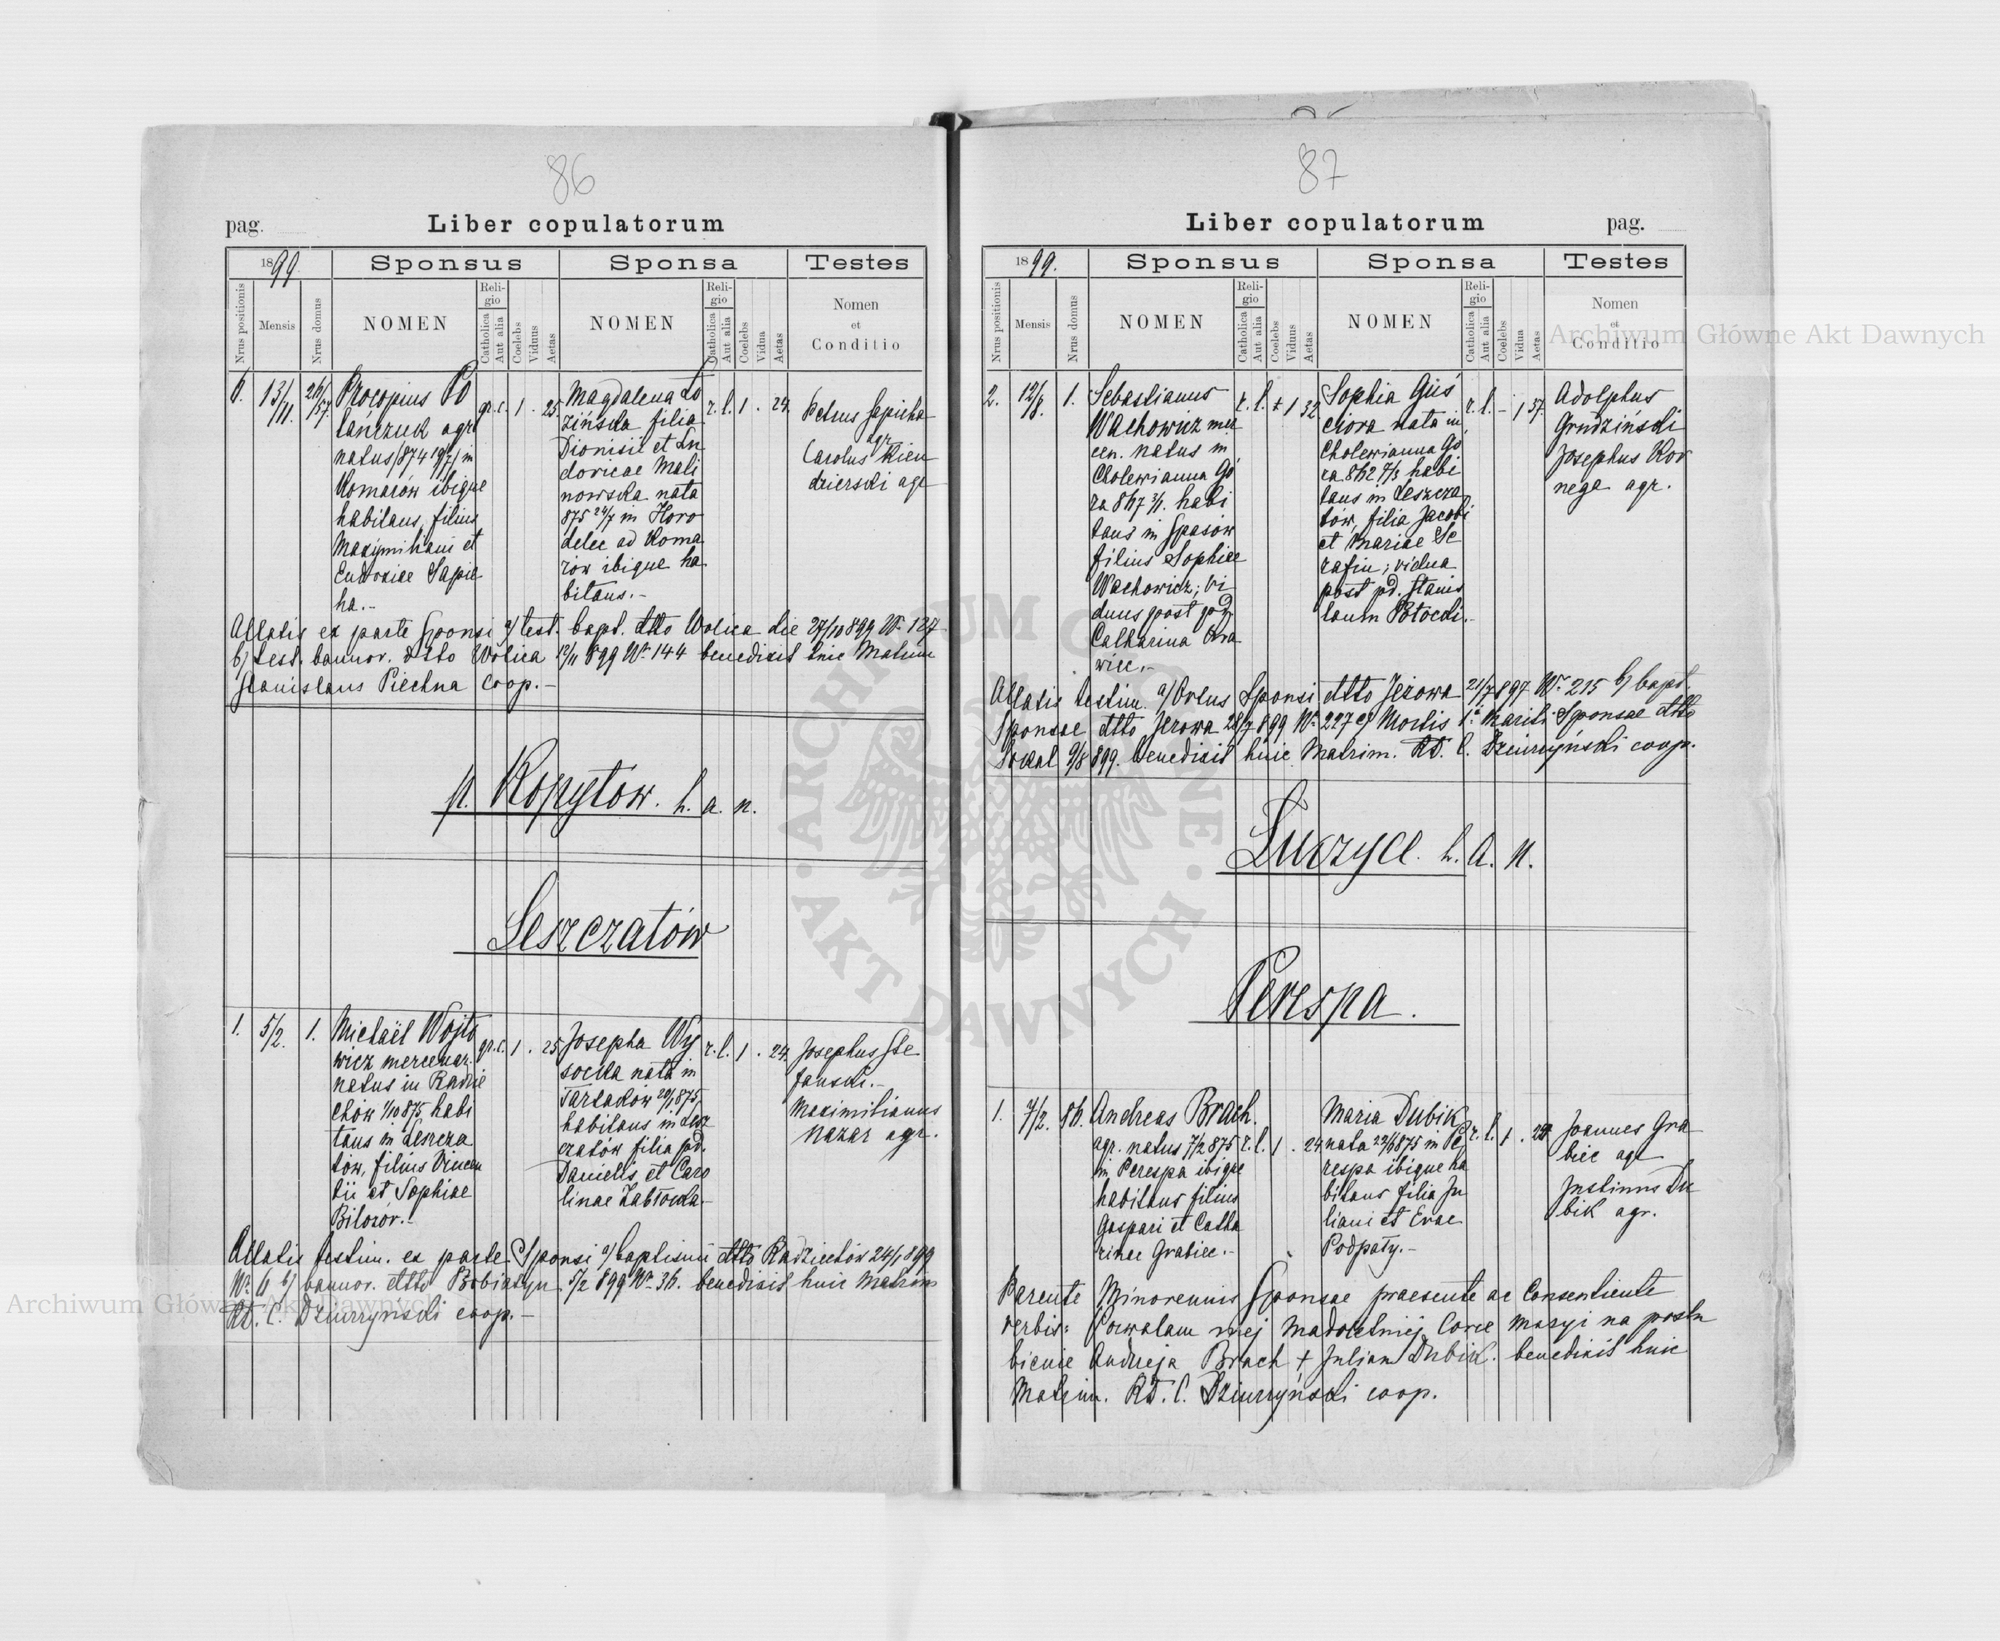 86
pag.
Liber copulatorum
1899.
Sponsus
Sponsa
Testes
Nrus positionis
Mensis
Nrus domus
NOMEN
Religio
Catholica
Aut alia
Coelebs
Viduus
Aetas
NOMEN
Religio
Catholica
Aut alia
Coelebs
Vidua
Aetas
Nomen
et
Conditio
6. 13/11.
Procopius Po
tańczuk agr.
natus 1874 19/7 in
Komarów ibique
habitans, filius
Maxymiliani et
Eudoxiae Sapie
ha.-
gr. c. 1 . 25
Magdalena Ło
zińska filia
Dionisii et Lu
dovicae Mali
nowska nata
875 24/7 in Horo
delec ad Koma
rów ibique ha
bitans.-
r. l. 1 . 24.
Petrus Sapieha
agr.
Carolus Kien
dzierski agr
Allatis ex parte Sponsi a/ test. bapt. dtto Wolica die 27/10 899 Nr. 127
b) test. bannor. dtto Wolica 12/11 899 Nr 144 benedixit huic Matrim
Stanislaus Piechna coop.-
p. Kopytów. h. a. n.
Leszczatów
1. 5/2. 1.
Michaël Wojto
wicz mercenar.
natus in Radzie
chów 1/10 875 habi
tans in Leszcza
tów, filius Vincen
tii et Sophiae
Bilozór.-
gr. c. 1 . 25
Josepha Wy
socka nata in
Tartaków 20/1 875,
habitans in Lesz
czatów filia pd.
Danielis et Caro
linae Zabłocka
r. l. 1 . 24.
Josephus Ste
fanski.-
Maximilianus
Nazar agr.
Allatis testim. ex parte Sponsi a/ baptismi dtto Radziechów 24/1 899
Nr. 6 b/ bannor. dtto Bobiatyn 5/2 899 Nr. 36. benedixit huic Matrim
RD. C. Dziurzyński coop.-
87
Liber copulatorum
pag.
1899.
Sponsus
Sponsa
Testes
Nrus positionis
Mensis
Nrus domus
NOMEN
Religio
Catholica
Aut alia
Coelebs
Viduus
Aetas
NOMEN
Religio
Catholica
Aut alia
Coelebs
Vidua
Aetas
Nomen
et
Conditio
2. 12/8. 1.
Sebastianus
Wachowicz mer
cen. natus in
Cholewianna Gó
ra 867 3/1. habi
tans in Spasów
filius Sophiae
Wachowicz; vi
duus post pd.
Catharina Kra
wiec.-
r. l. + 1 32
Sophia Guś
ciora nata in
Cholewianna Gó
ra 862 5/3 habi
tans in Leszcza
tów, filia Jacobi
et Mariae Se
rafin; vidua
post pd. Stanis
laum Potocki.-
r. l. - 1 37.
Adolphus
Grudziński
Josephus Kor
nega agr.
Allatis testim. a/ Ortus Sponsi dtto Jeżowa 21/7 897 Nr. 215 b/ bapt.
Sponsae dtto Jeżowa 28/7 899 Nr. 227 c/ Mortis 1i Mariti Sponsae dtto
Sokal 9/8 899. benedixit huic Matrim. RD. C. Dziurzyński coop.
Łuczyce. h. a. n.
Perespa.
1. 7/2. 86.
Andreas Brach.
agr. natus 7/2 875
in Perespa ibique
habitans filius
Gaspari et Catha
rinae Grabiec.-
r. l. 1 . 24
Maria Dubik
nata 29/6 875 in Pe
respa ibique ha
bitans filia Ju
liani et Evae
Podpały.-
r. l. 1 .
Joannes Gra
biec agr
Justinus Du
bik agr.
Parente Minorennis Sponsae praesente ac Consentiente
verbis: Pozwalam mej Małoletniej Corce Maryi na poślu
bienie Andreja Brach + Julian Dubik. benedixit huic
Matrim. RD. C. Dziurzyński coop.
Archiwum Główne Akt Dawnych
Archiwum Główne Akt Dawnych
ARCHIWUM GŁÓWNE · AKT DAWNYCH ·